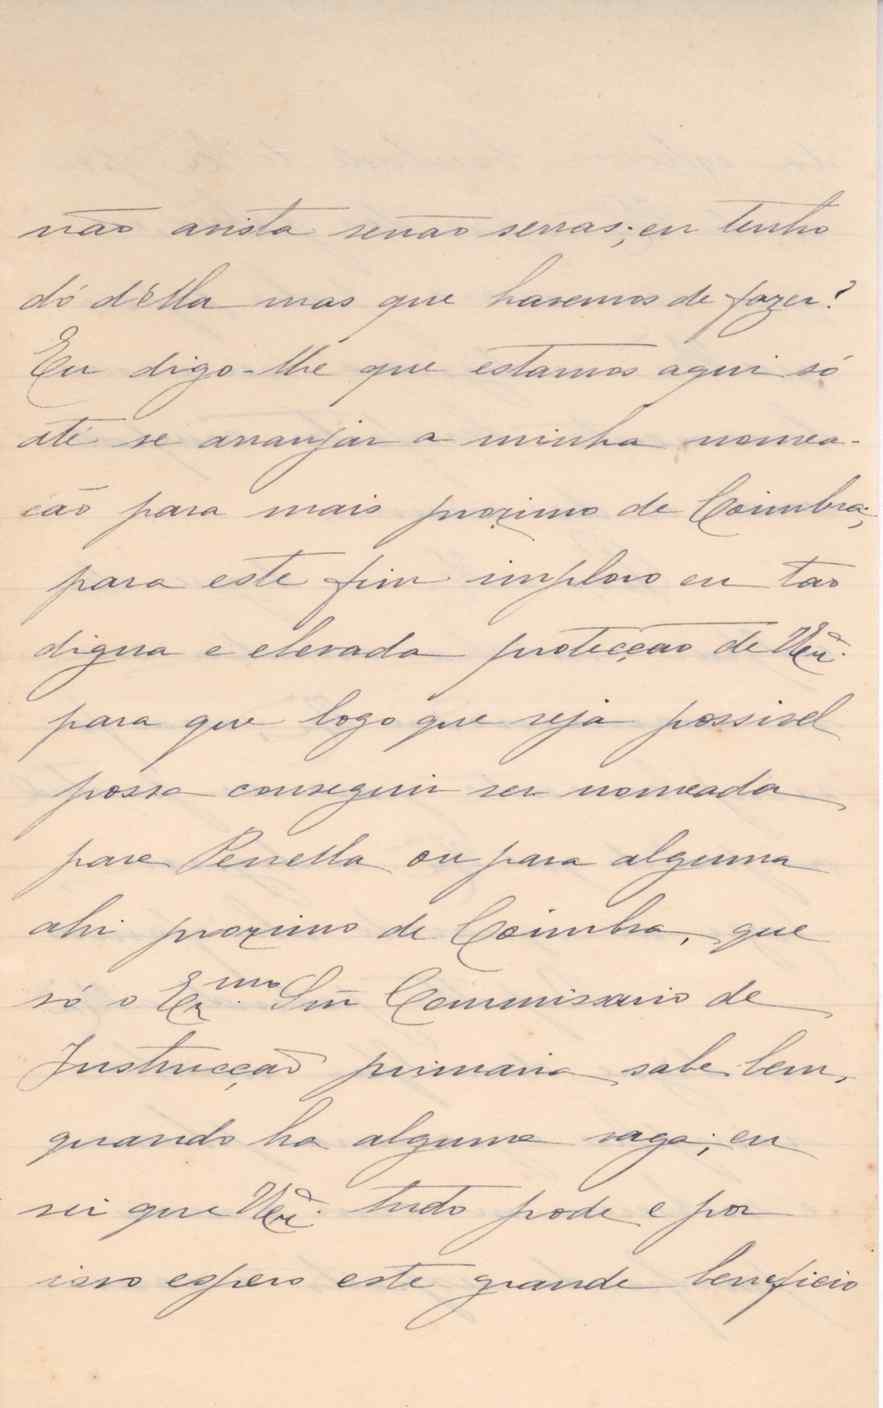 não avista senão serras; eu tenho
dó d'Ella mas que havemos de fazer?
Eu digo-lhe que estamos aqui só
até se arranjar a minha nomea-
ção para mais proximo de Coimbra;
para este fim imploro eu tão
digna e elevada protecção de
para que logo que seja possivel
possa conseguir ser nomeada
para Penella ou para alguma
ahi proximo de Coimbra, que
só o Ex.mo Snr Commissario de
Instrucção primaria sabe bem,
quando ha alguma vaga; eu
sei que tudo pode e por
isso espero este grande beneficio